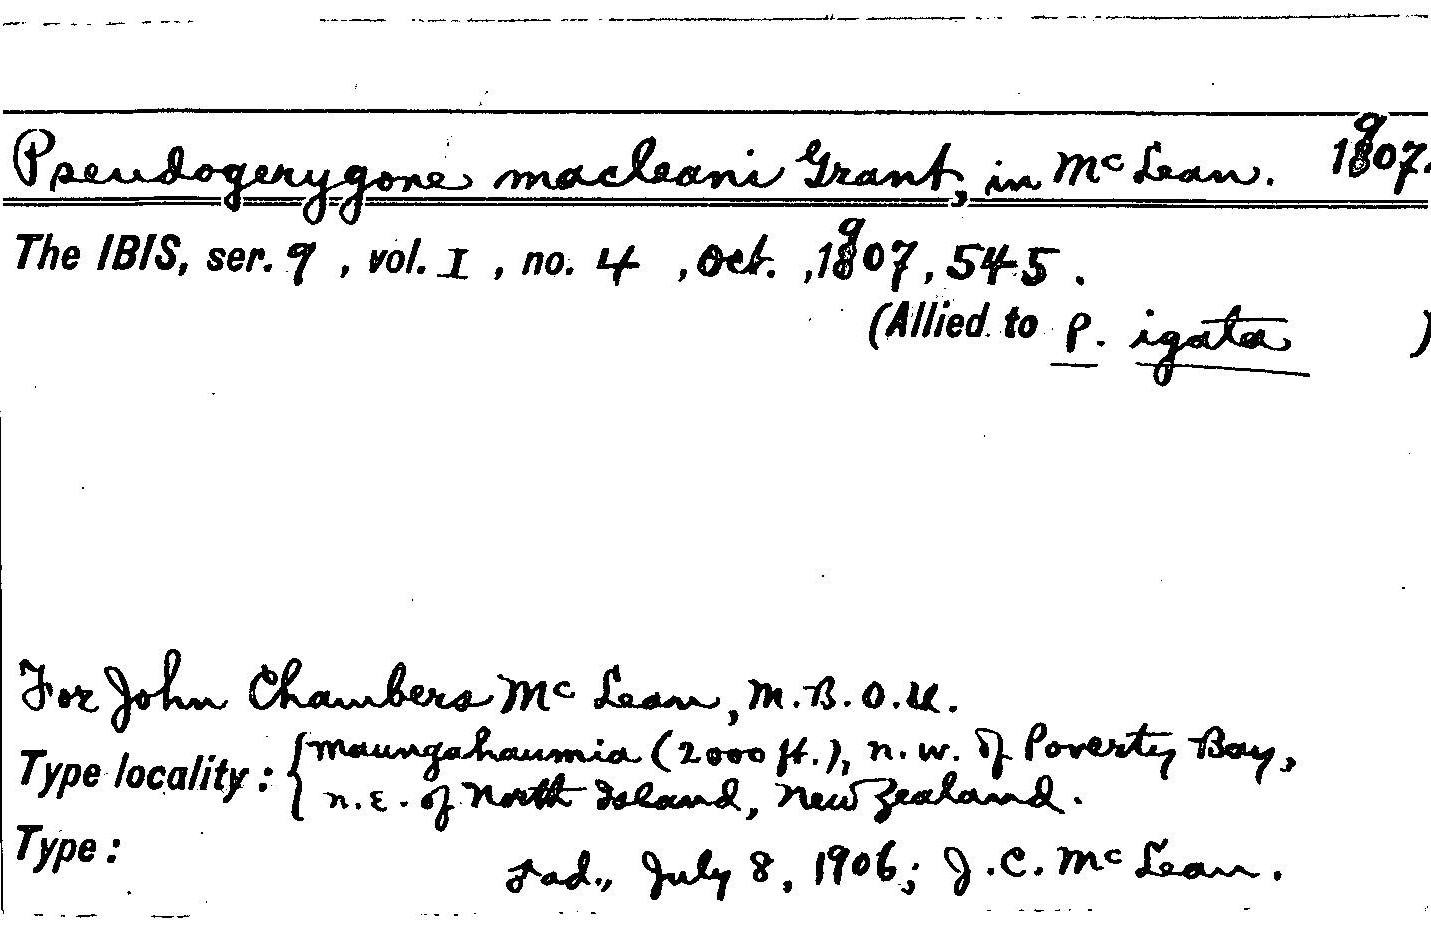 Pseudogerygone macleani Grant, in Mc Lean. 1907.
The IBIS, ser. 9, vol. I, no. 4, Oct., 1907, 545.
(Allied to P. igata )
For John Chambers Mc Lean, M.B.O.U.
Type locality: { Maungahaumia (2000 ft.), n.w. of Poverty Bay,
n.E. of North Island, New Zealand.
Type:
ad., July 8, 1906; J.C. Mc Lean.